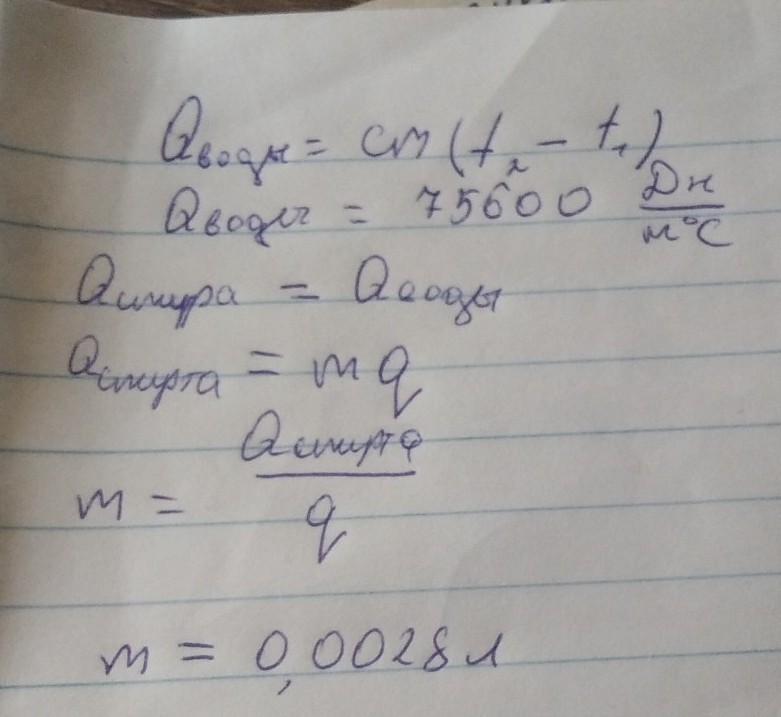 Qводы = cm(t₂ - t₁)
Qводы = 75600 Дж/м°C
Qспира = Qводы
Qспирта = mq
m = Qспирта/q
m = 0,0028 л